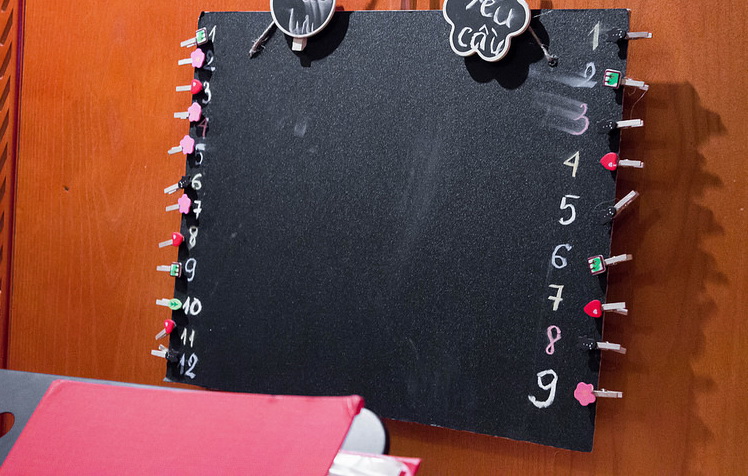 Yêu
cầu
1
2
3
4
5
6
7
8
9
10
11
12
1
2
3
4
5
6
7
8
9